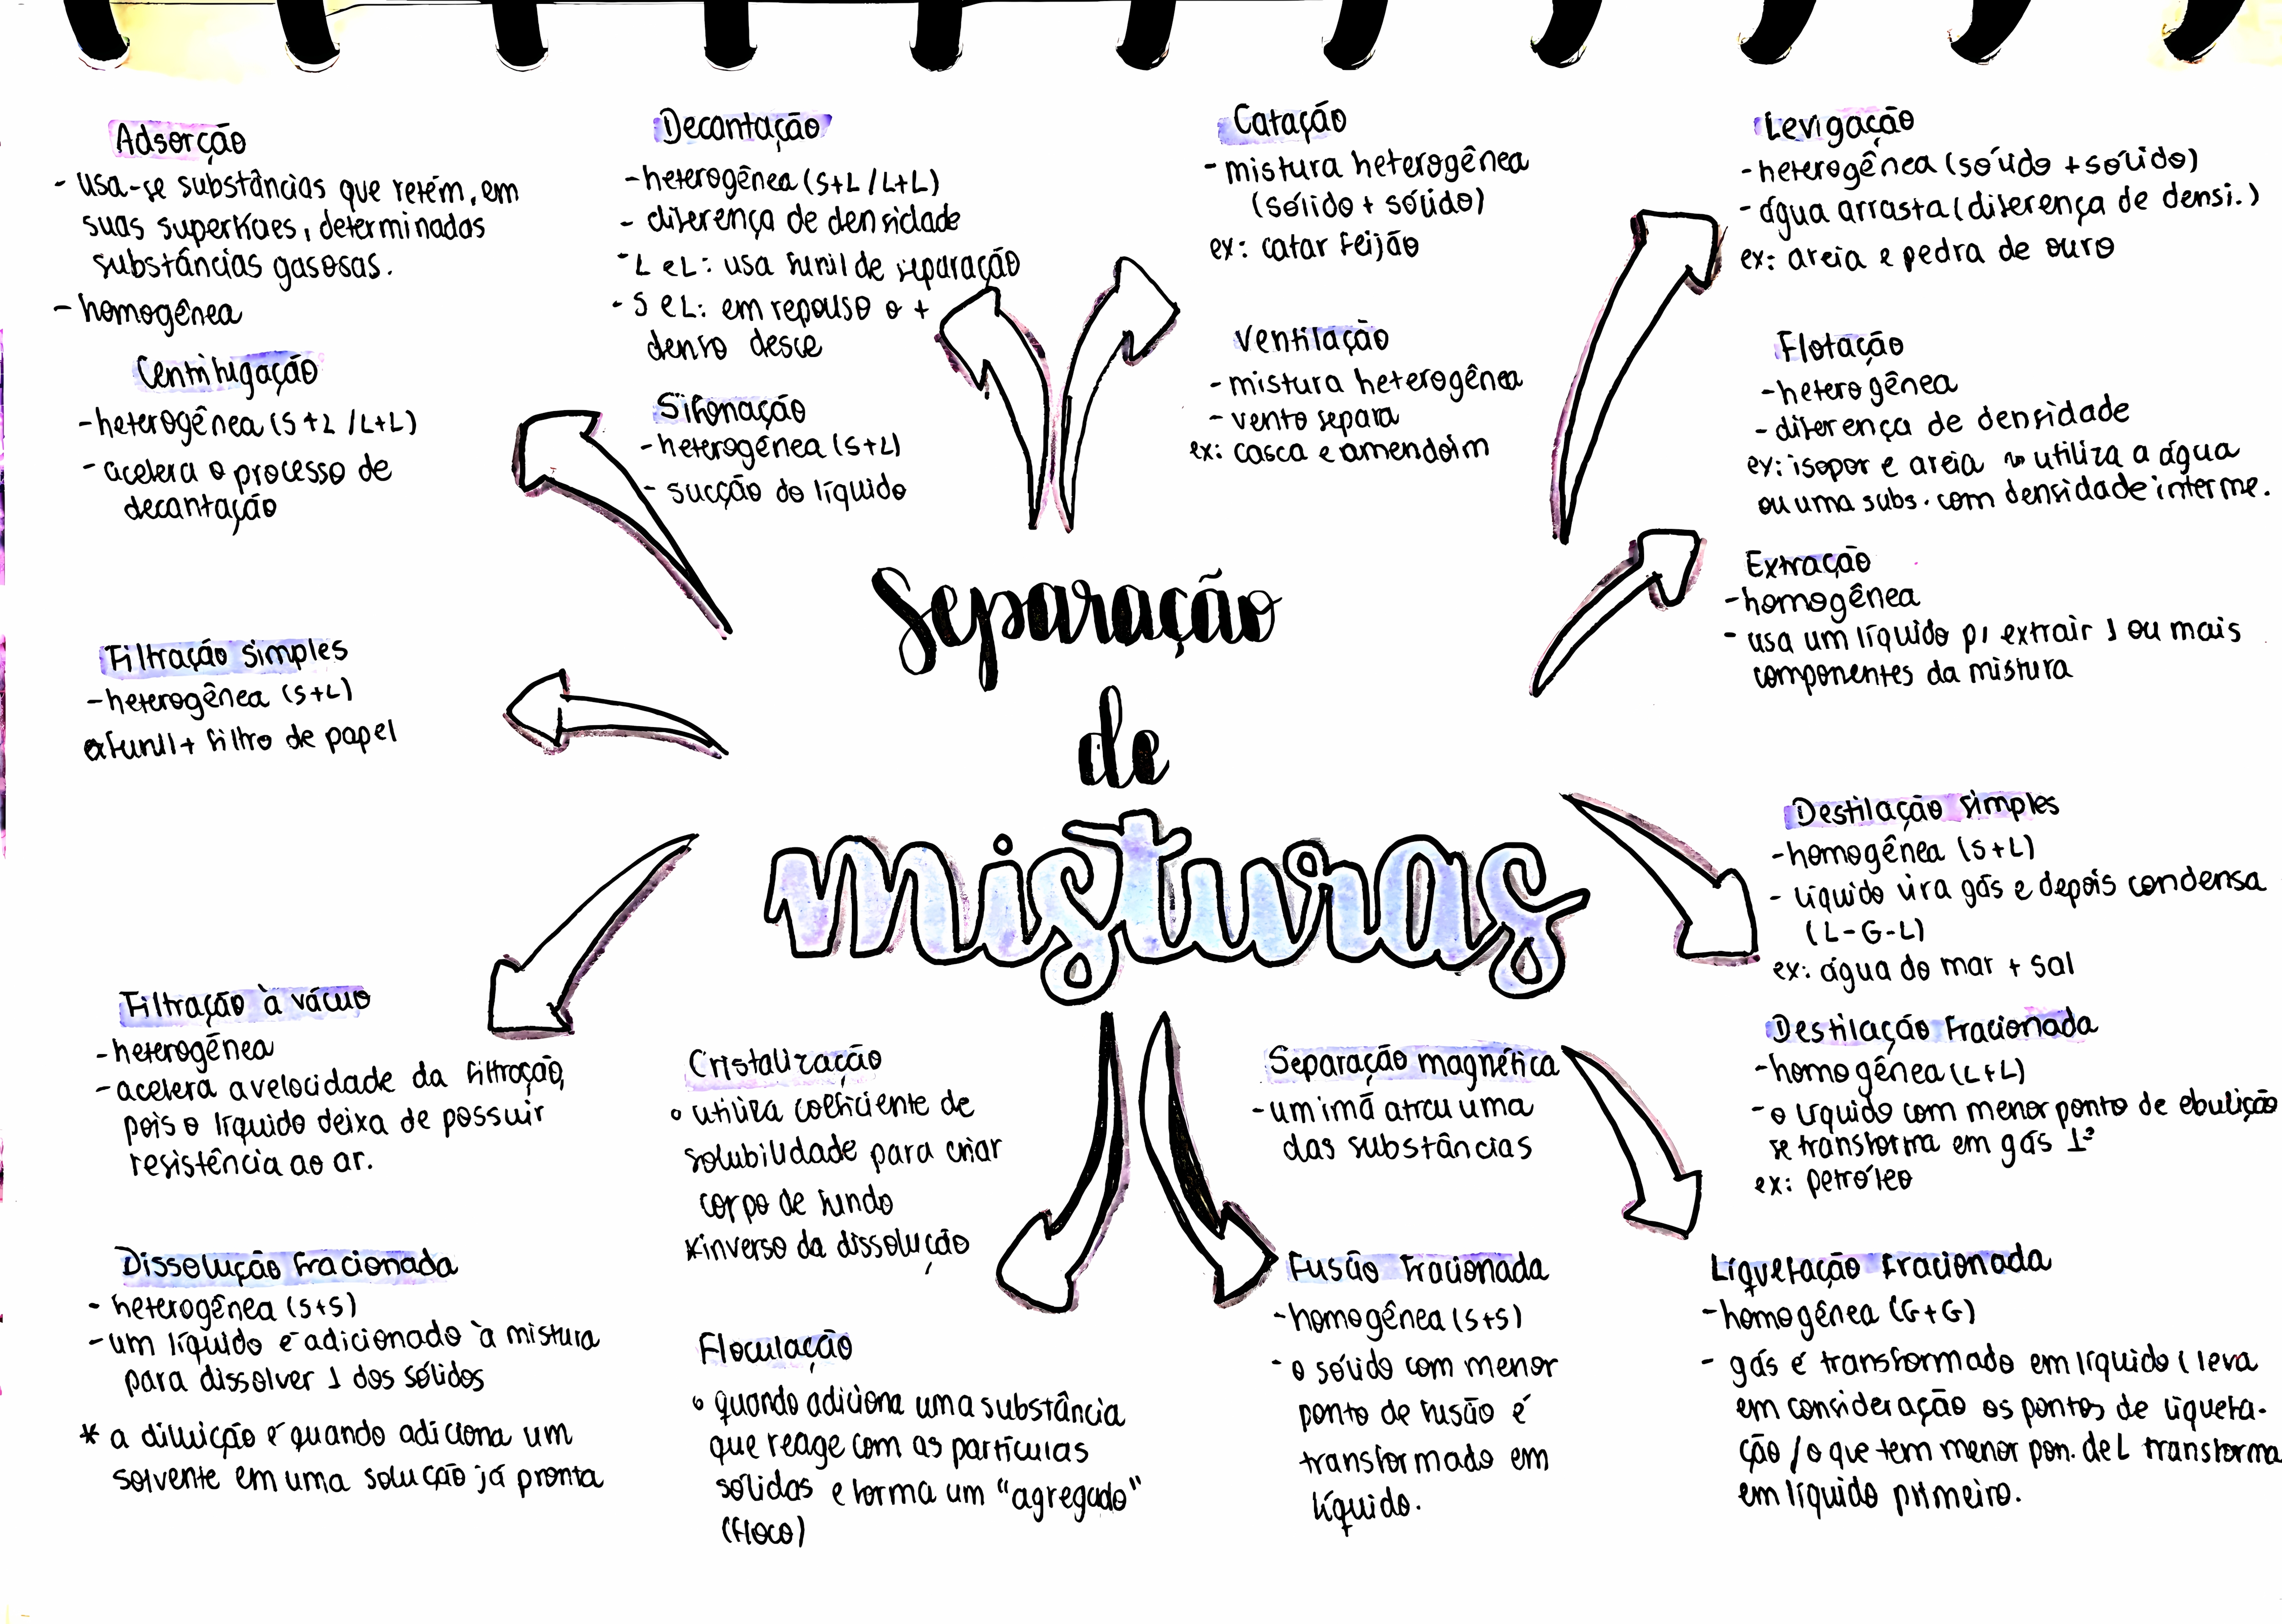 Adsorção
- usa-se substâncias que retém, em
suas superfícies, determinadas
substâncias gasosas.
- homogênea
Centrifugação
- heterogênea (S+L / L+L)
- acelera o processo de
decantação
Filtração simples
- heterogênea (S+L)
funil + filtro de papel
Filtração à vácuo
- heterogênea
- acelera a velocidade da filtração,
pois o líquido deixa de possuir
resistência ao ar.
Dissolução fracionada
- heterogênea (S+S)
- um líquido é adicionado à mistura
para dissolver 1 dos sólidos
* a diluição é quando adiciona um
solvente em uma solução já pronta
Decantação
- heterogênea (S+L / L+L)
- diferença de densidade
- L e L: usa funil de separação
- S e L: em repouso o +
denso desce
Sifonação
- heterogênea (S+L)
- sucção do líquido
Separação
de
misturas
Cristalização
° utiliza coeficiente de
solubilidade para criar
corpo de fundo
*inverso da dissolução
Floculação
° quando adiciona uma substância
que reage com as partículas
sólidas e forma um "agregado"
(floco)
Catação
- mistura heterogênea
(sólido + sólido)
ex: catar feijão
Ventilação
- mistura heterogênea
- vento separa
ex: casca e amendoim
Separação magnética
- um imã atrai uma
das substâncias
Fusão fracionada
- homogênea (S+S)
- o sólido com menor
ponto de fusão é
transformado em
líquido.
Levigação
- heterogênea (sólido + sólido)
- água arrasta (diferença de densi.)
ex: areia e pedra de ouro
Flotação
- heterogênea
- diferença de densidade
ex: isopor e areia ~> utiliza a água
ou uma subs. com densidade interme.
Extração
- homogênea
- usa um líquido p/ extrair 1 ou mais
componentes da mistura
Destilação simples
- homogênea (S+L)
- líquido vira gás e depois condensa
(L-G-L)
ex: água do mar + sal
Destilação fracionada
- homogênea (L+L)
- o líquido com menor ponto de ebulição
se transforma em gás 1º
ex: petróleo
Liquefação fracionada
- homogênea (G+G)
- gás é transformado em líquido (leva
em consideração os pontos de liquefa-
ção / o que tem menor pon. de L transforma
em líquido primeiro.